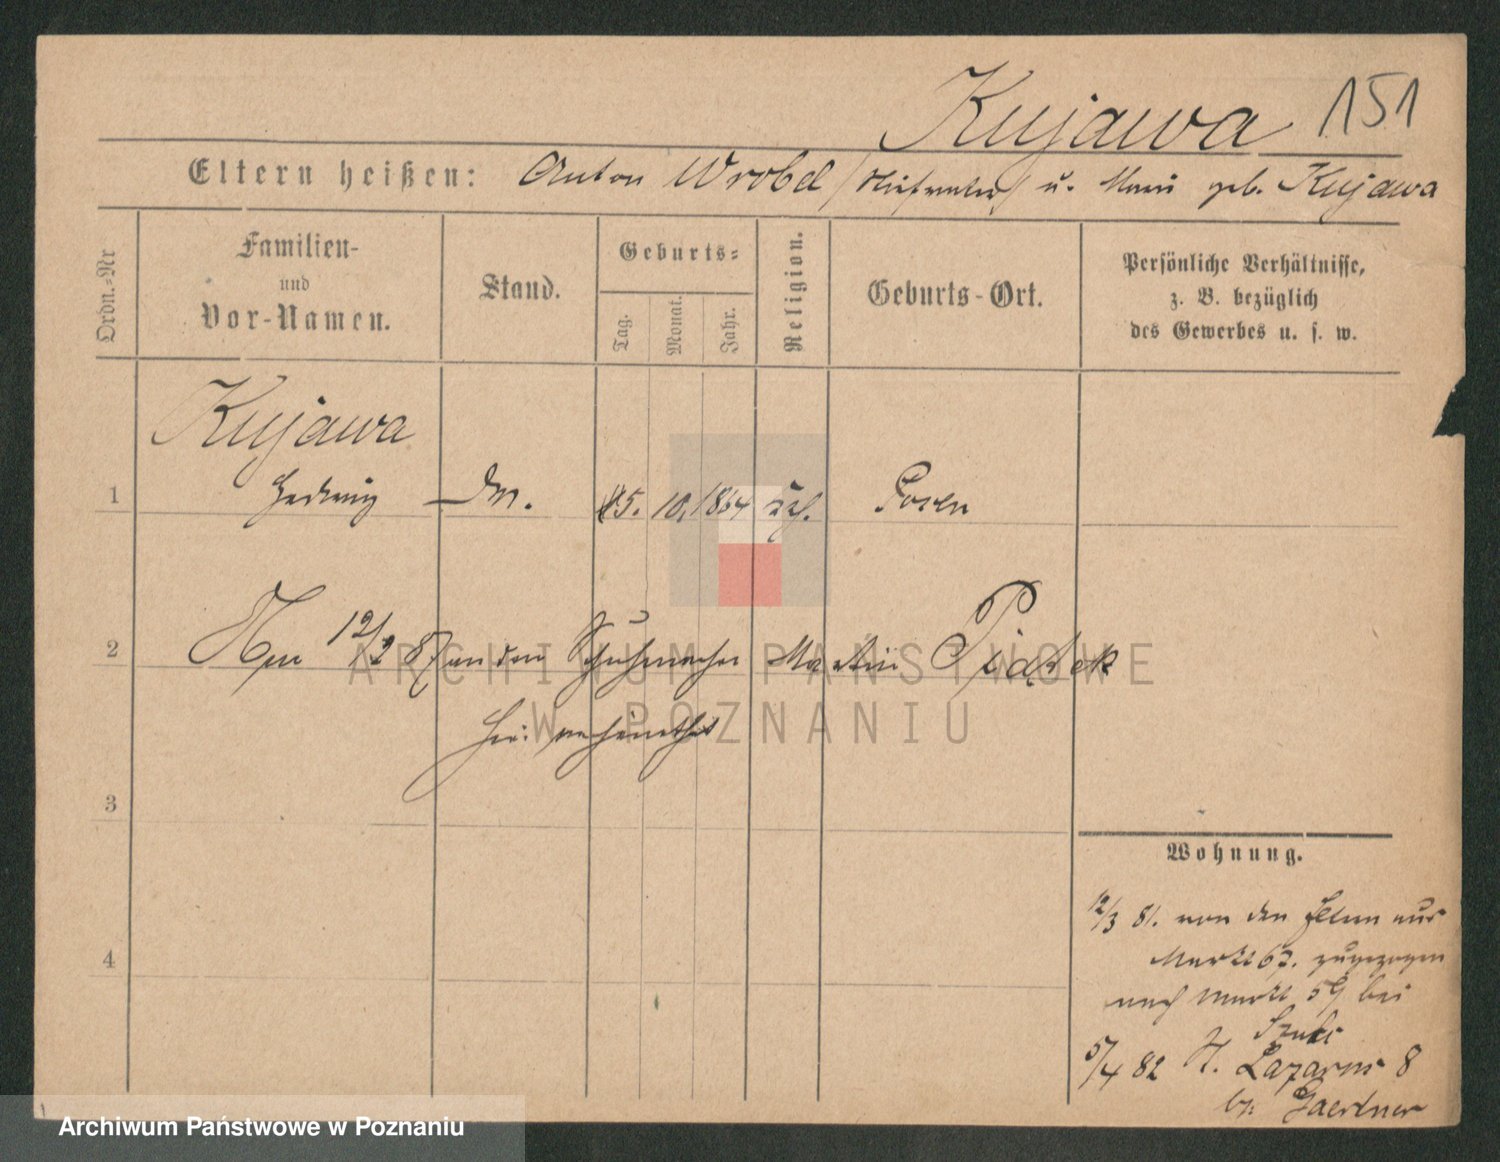 Kujawa 151
Eltern heißen: Anton Wrobel u. Marie geb. Kujawa
Ordn.-Nr
Familien-
und
Vor-Namen.
Stand.
Geburts-
Tag.
Monat.
Jahr.
Religion.
Geburts-Ort.
Persönliche Verhältnisse,
z. B. bezüglich
des Gewerbes u. s. w.
Kujawa
1 Hedwig 15. 10. 1864 Posen
2 Am 12/2 87 an den Schuhmacher Martin Piątek
hier verheirathet
3
4
Wohnung.
12/3 81. von den Eltern aus
Markt 63. zugezogen
nach Markt 59 bei
5/4 82 St. Lazarus 8
b. Gaertner
ARCHIWUM PAŃSTWOWE
W POZNANIU
Archiwum Państwowe w Poznaniu